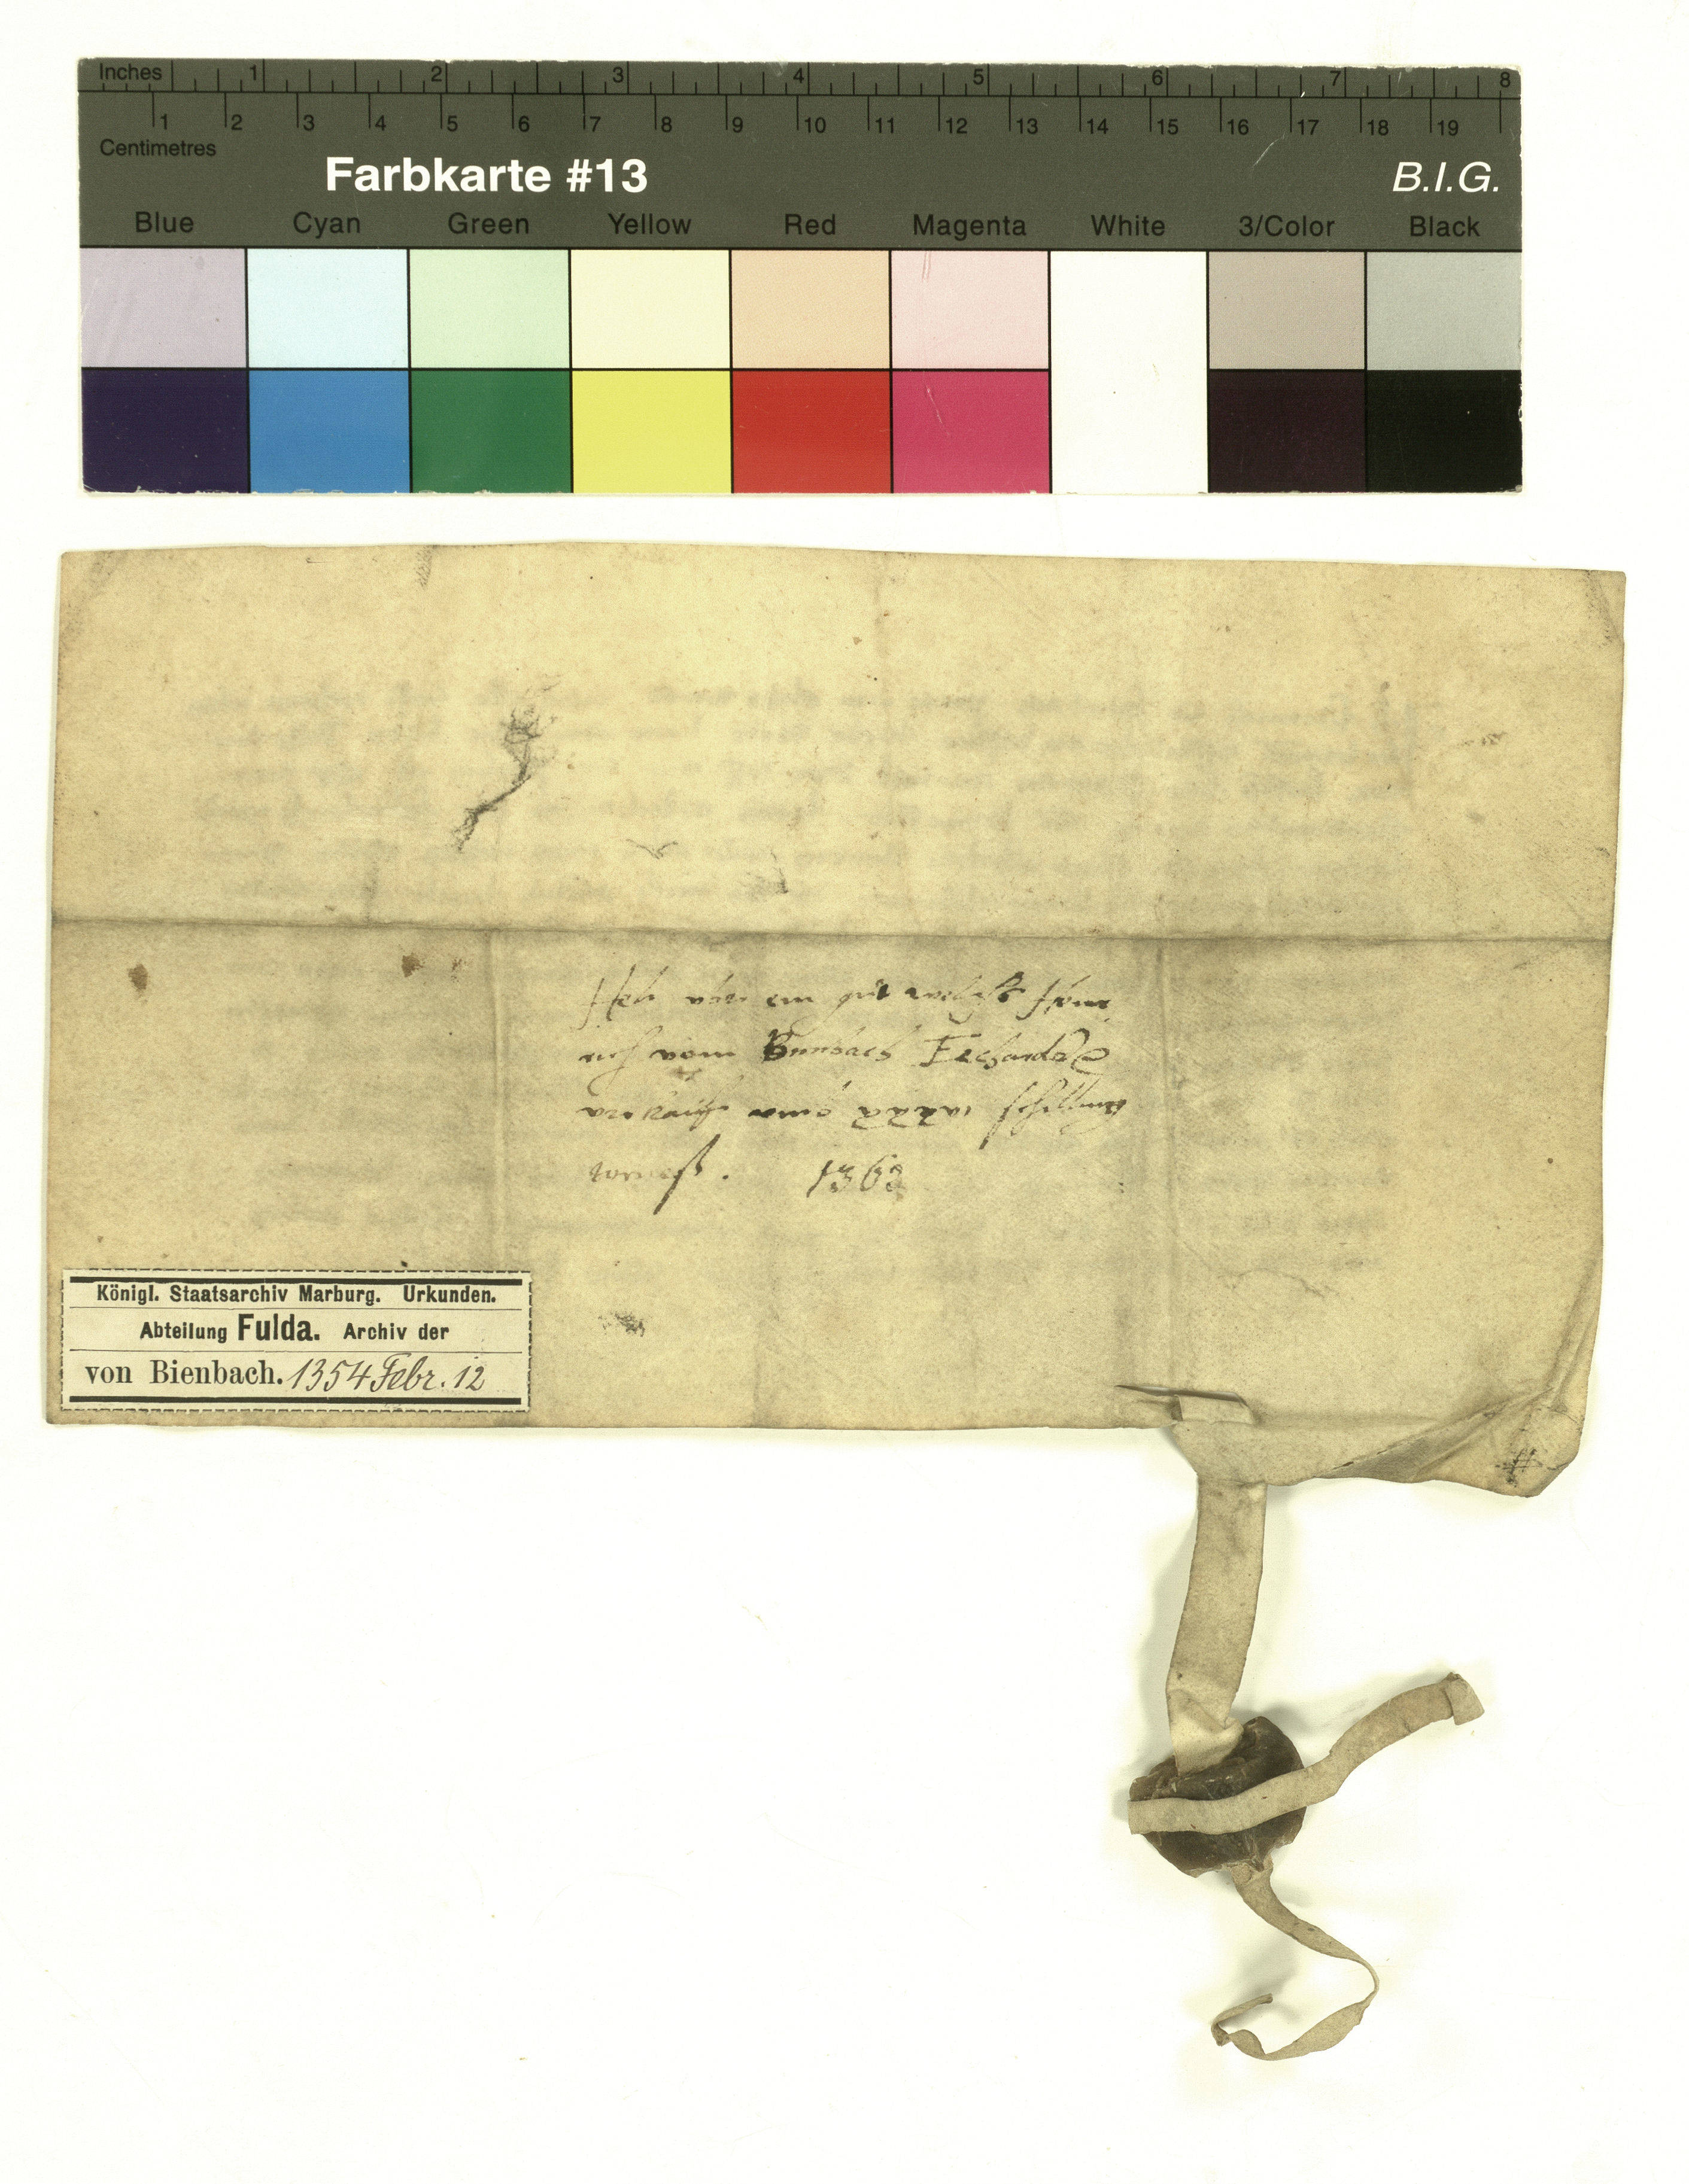 Inches 1 2 3 4 5 6 7 8
1 2 3 4 5 6 7 8 9 10 11 12 13 14 15 16 17 18 19
Centimetres
Farbkarte #13 B.I.G.
Blue Cyan Green Yellow Red Magenta White 3/Color Black
ein gut welchß
vom Bimbach Eckarde
verkaufft xxxvi schilling
torneß. 1363
Königl. Staatsarchiv Marburg. Urkunden.
Abteilung Fulda. Archiv der
von Bienbach. 1354 Febr. 12